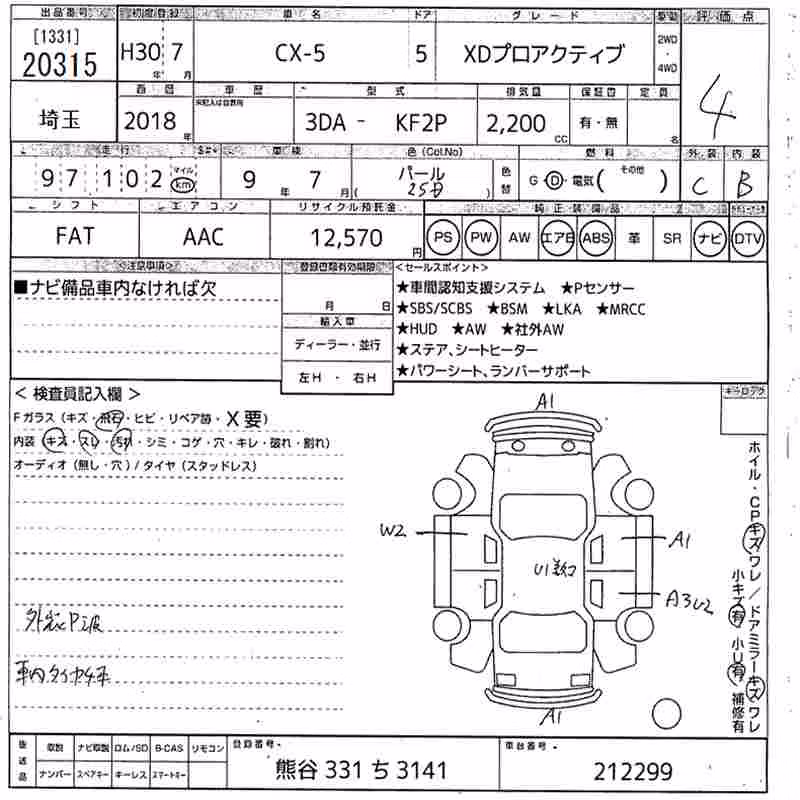 出品番号 初度登録 車名 ドア グレード 駆動 評価点
[1331]
20315 H30 7 CX-5 5 XDプロアクティブ 2WD・4WD 4
年 月
西暦 車歴 型式 排気量 保証書 定員
埼玉 2018年 未記入は自家用 3DA - KF2P 2,200cc 有・無 名
走行 車検 色(Col.No) 燃料 外装 内装
97,102 マイル km 9年 7月 パール 25D 色替 G・D・電気( その他 ) C B
シフト エアコン リサイクル預託金 純正装備品
FAT AAC 12,570円 PS PW AW エアB ABS 革 SR ナビ DTV
<注意事項> 登録書類有効期限 <セールスポイント>
■ナビ備品車内なければ欠
月 日
輸入車
ディーラー・並行
左H・右H
★車間認知支援システム ★Pセンサー
★SBS/SCBS ★BSM ★LKA ★MRCC
★HUD ★AW ★社外AW
★ステア、シートヒーター
★パワーシート、ランバーサポート
<検査員記入欄>
Fガラス(キズ・飛石・ヒビ・リペア歯・X要)
内装(キズ・スレ・汚れ・シミ・コゲ・穴・キレ・破れ・割れ)
オーディオ(無し・穴)/タイヤ(スタッドレス)
キーロック
A1
W2
A1
U1
A3 U2
A1
ホイル・CPキズワレ/ドアミラーキズワレ
小キズ有 小U有 補修有
外装P波
車内
後送品 取説 ナビ取説 ロム/SD B-CAS リモコン
ナンバー スペアキー キーレス スマートキー
登録番号
熊谷 331 ち 3141
車台番号
212299